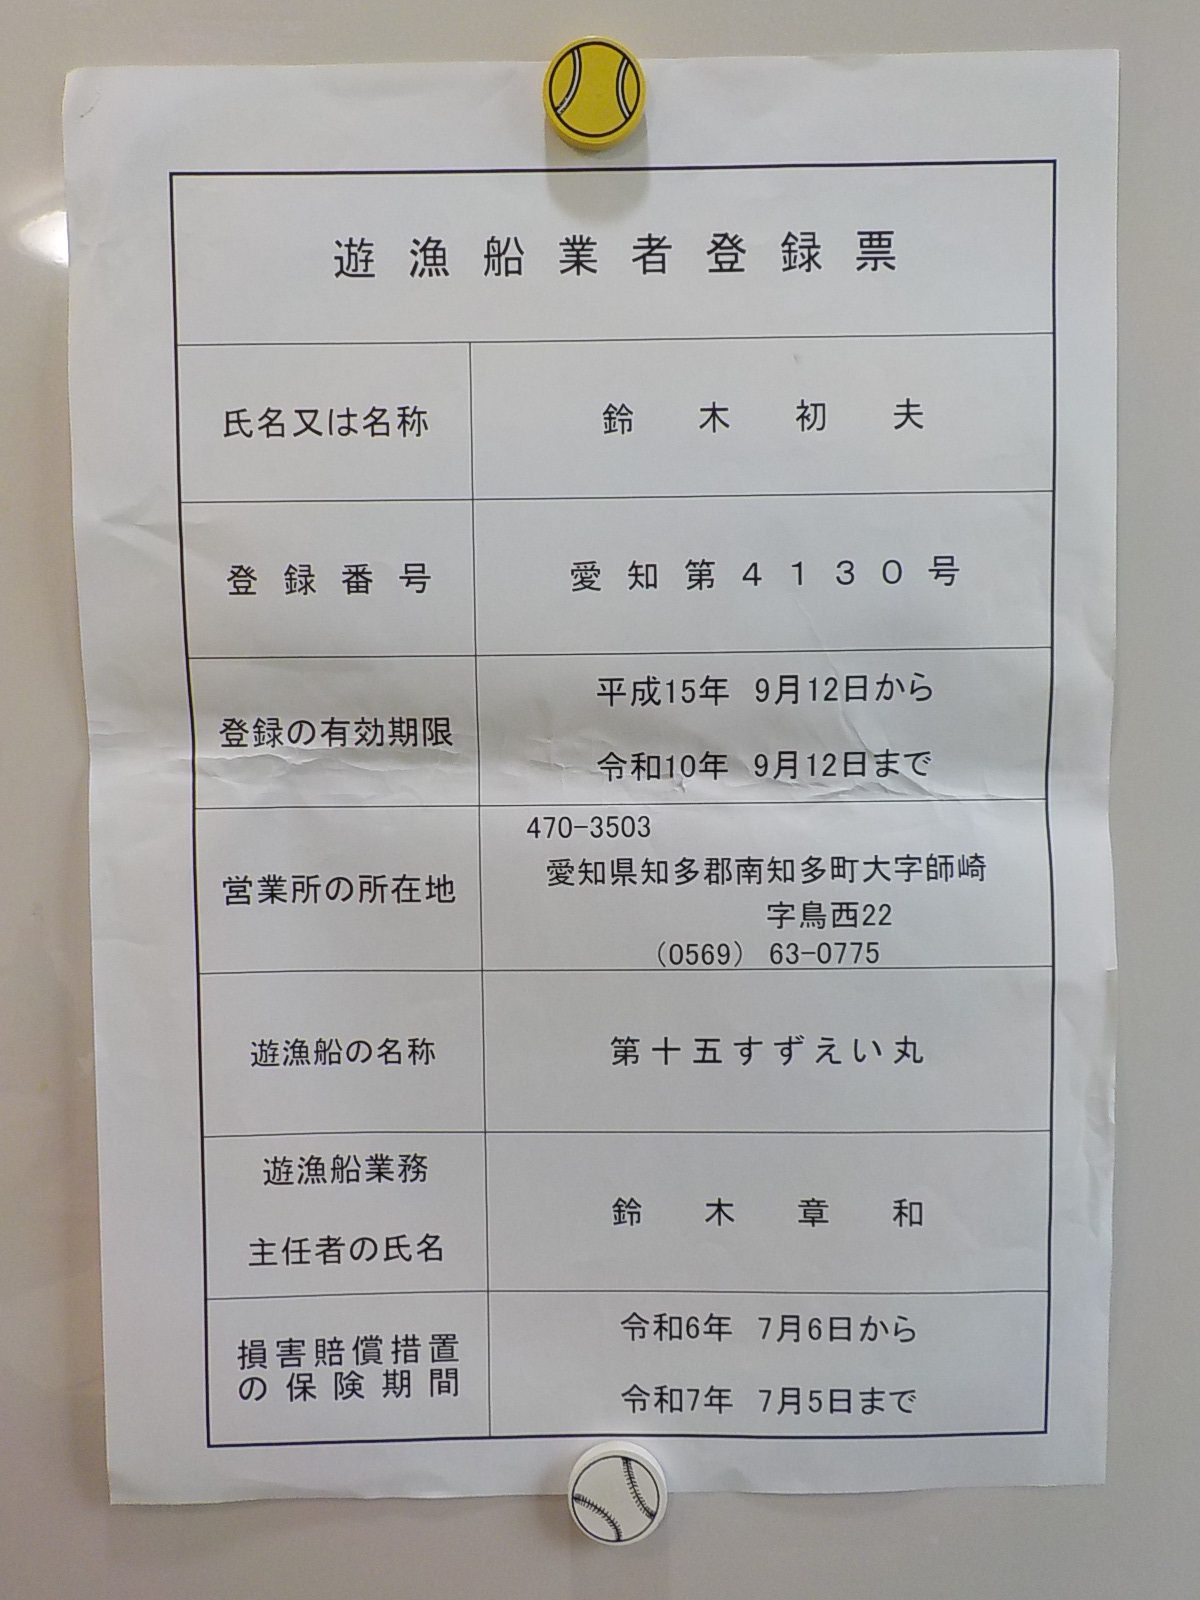 遊漁船業者登録票
氏名又は名称
鈴木初夫
登録番号
愛知第4130号
登録の有効期限
平成15年 9月12日から
令和10年 9月12日まで
営業所の所在地
470-3503
愛知県知多郡南知多町大字師崎
字鳥西22
(0569) 63-0775
遊漁船の名称
第十五すずえい丸
遊漁船業務
主任者の氏名
鈴木章和
損害賠償措置
の保険期間
令和6年 7月6日から
令和7年 7月5日まで